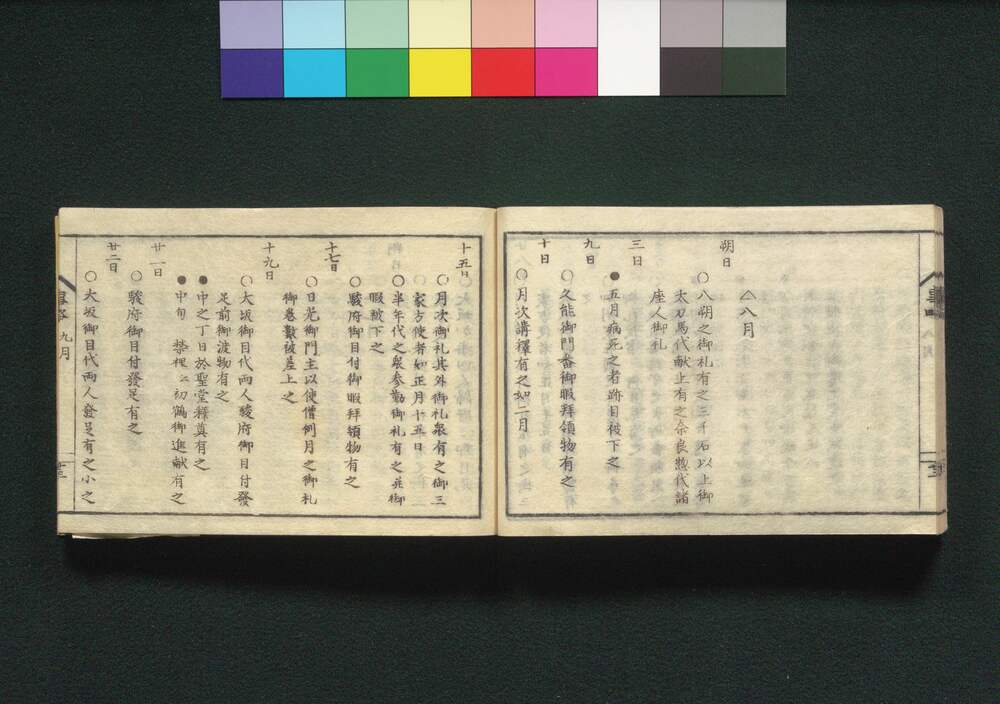 △八月
朔日
○八朔之御礼有之三千石以上御
太刀馬代献上有之奈良惣代諸
座人御礼
三日
●五月病死之者跡目被下之
九日
○久能御門番御暇拝領物有之
十日
○月次講釋有之如二月
十五日
○月次御礼其外御礼衆有之御三
家方使者如正月十五日
○半年代之衆参勤御礼有之并御
暇被下之
十七日
○駿府御目付御暇拝領物有之
○日光御門主以使僧例月之御札
御巻数被差上之
十九日
○大坂御目代両人駿府御目付發
足前御渡物有之
●中之丁日於聖堂釋奠有之
●中旬 禁裡江初鶴御進献有之
廿一日
○駿府御目付發足有之
廿二日
○大坂御目代両人發足有之小之
九月